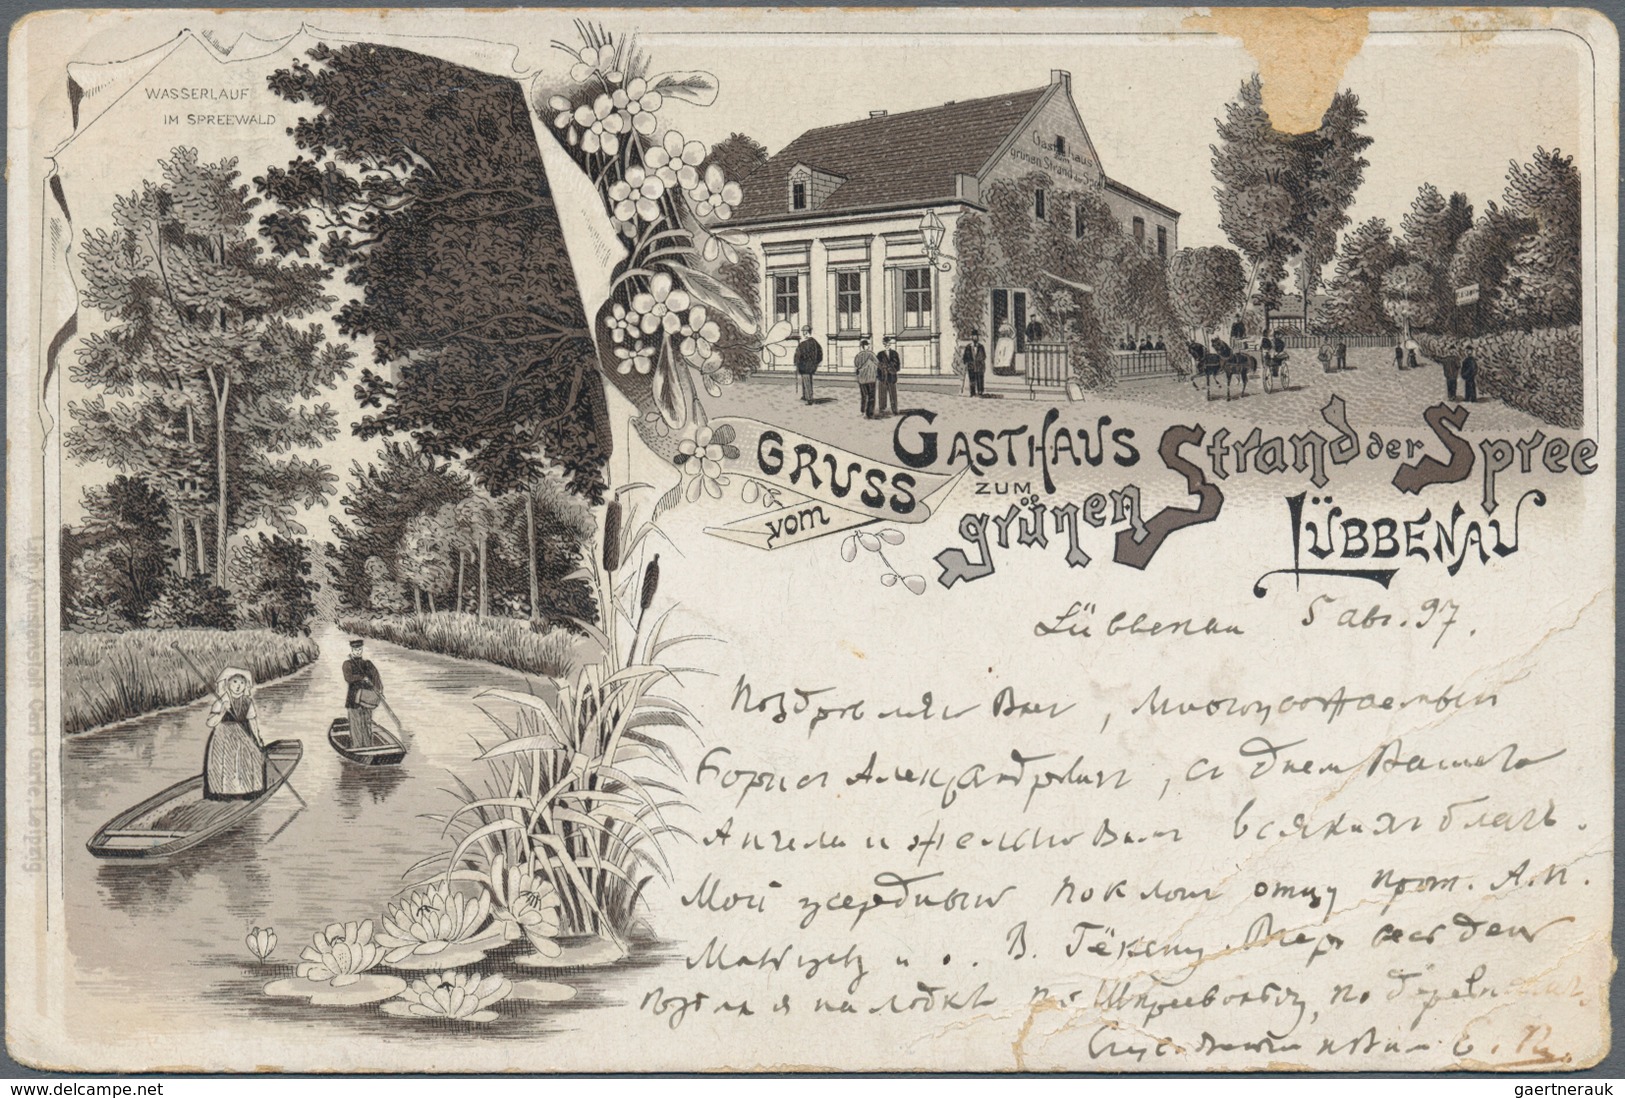 WASSERLAUF
IM SPREEWALD
Gasthaus
zum
grünen Strand d. Spree
GRUSS
vom
GASTHAUS
ZUM
grünen Strand der Spree
LÜBBENAU
Lübbenau 5 авг. 97.
Поздравляю Вас, Многоуважаемый
Борис Александрович, съ днем Вашего
Ангела и желаю Вам всяких благъ.
Мой усердный поклон отцу прот. А. П.
и о. В. Вчера весь день
ездил я на лодкѣ по Шпреевальду, по
Е.
Lith. Kunstanstalt Carl Garte, Leipzig
delcampe.net
gaertnerauk